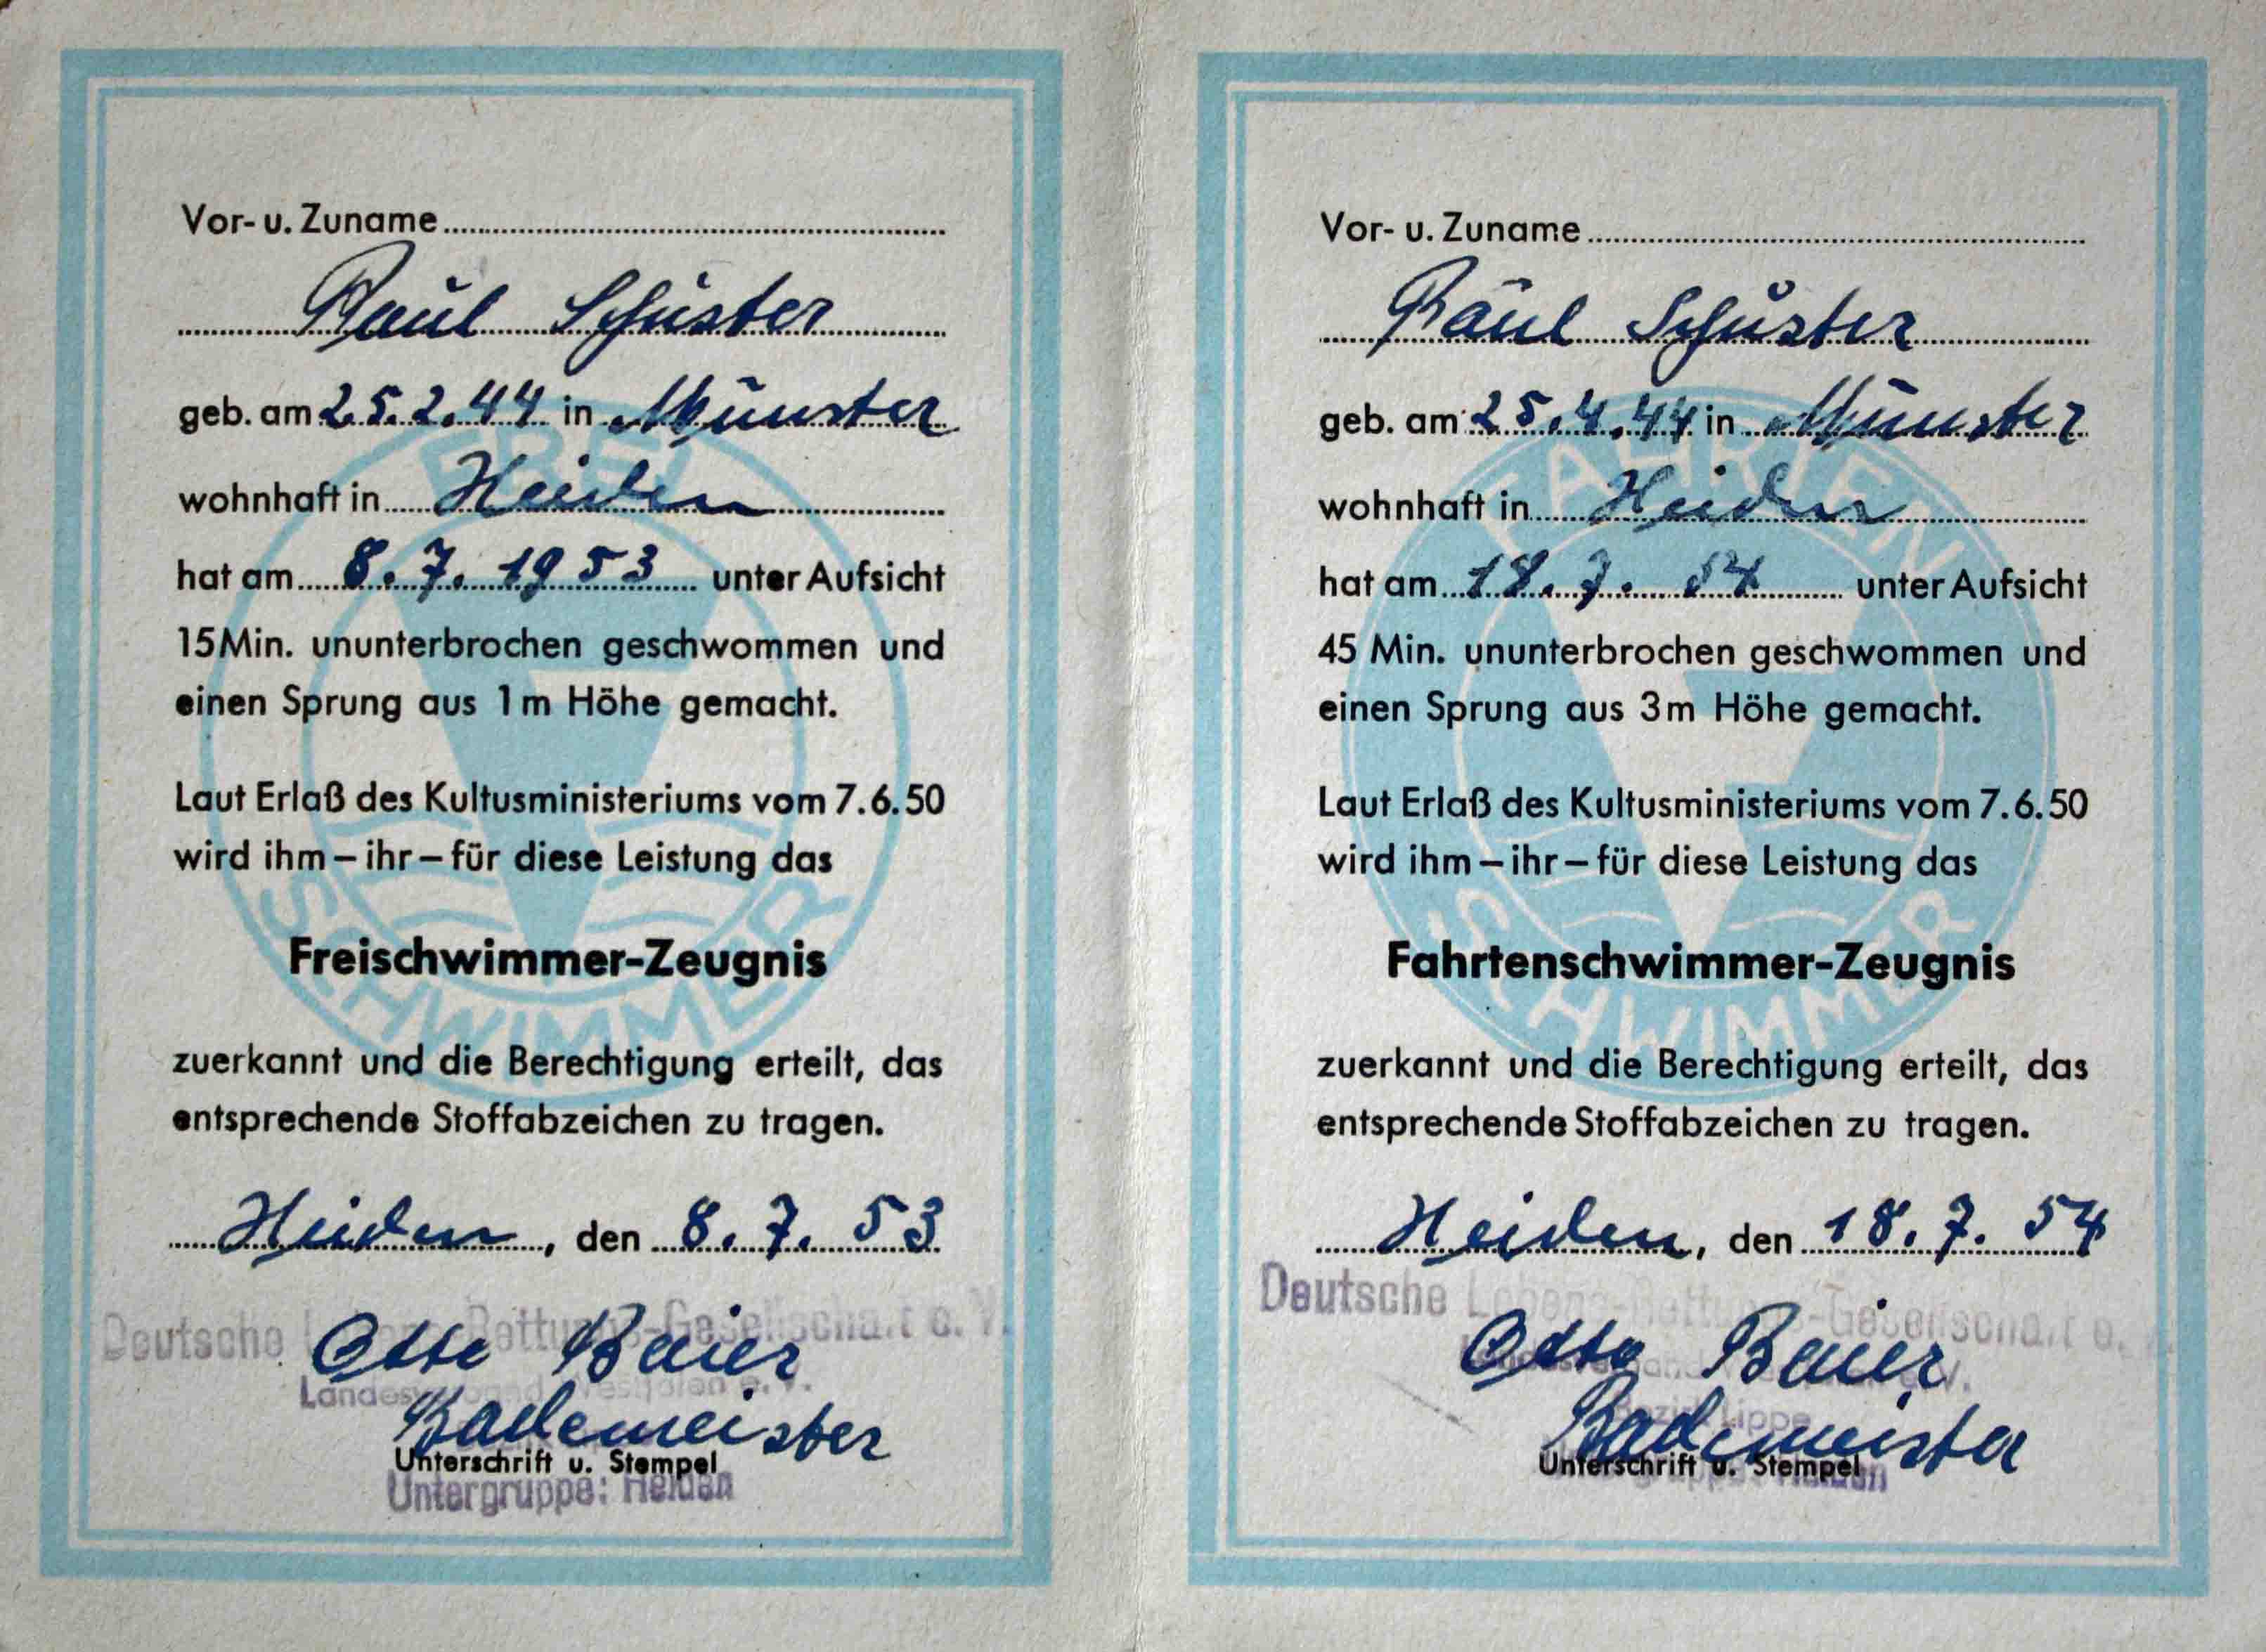 Vor- u. Zuname
Paul Schuster
geb. am 25.2.44 in Münster
wohnhaft in Heiden
hat am 8.7.1953 unter Aufsicht
15 Min. ununterbrochen geschwommen und
einen Sprung aus 1 m Höhe gemacht.
Laut Erlaß des Kultusministeriums vom 7.6.50
wird ihm – ihr – für diese Leistung das
Freischwimmer-Zeugnis
zuerkannt und die Berechtigung erteilt, das
entsprechende Stoffabzeichen zu tragen.
Heiden, den 8.7.53
Deutsche Lebens-Rettungs-Gesellschaft e. V.
Otto Baier
Landesverband Westfalen e. V.
Bademeister
Unterschrift u. Stempel
Untergruppe: Heiden
FREI
SCHWIMMER
Vor- u. Zuname
Paul Schuster
geb. am 25.4.44 in Münster
wohnhaft in Heiden
hat am 18.7.54 unter Aufsicht
45 Min. ununterbrochen geschwommen und
einen Sprung aus 3 m Höhe gemacht.
Laut Erlaß des Kultusministeriums vom 7.6.50
wird ihm – ihr – für diese Leistung das
Fahrtenschwimmer-Zeugnis
zuerkannt und die Berechtigung erteilt, das
entsprechende Stoffabzeichen zu tragen.
Heiden, den 18.7.54
Deutsche Lebens-Rettungs-Gesellschaft e. V.
Otto Baier
Bezirk Lippe
Bademeister
Unterschrift u. Stempel
Untergruppe: Heiden
FAHRTEN
SCHWIMMER